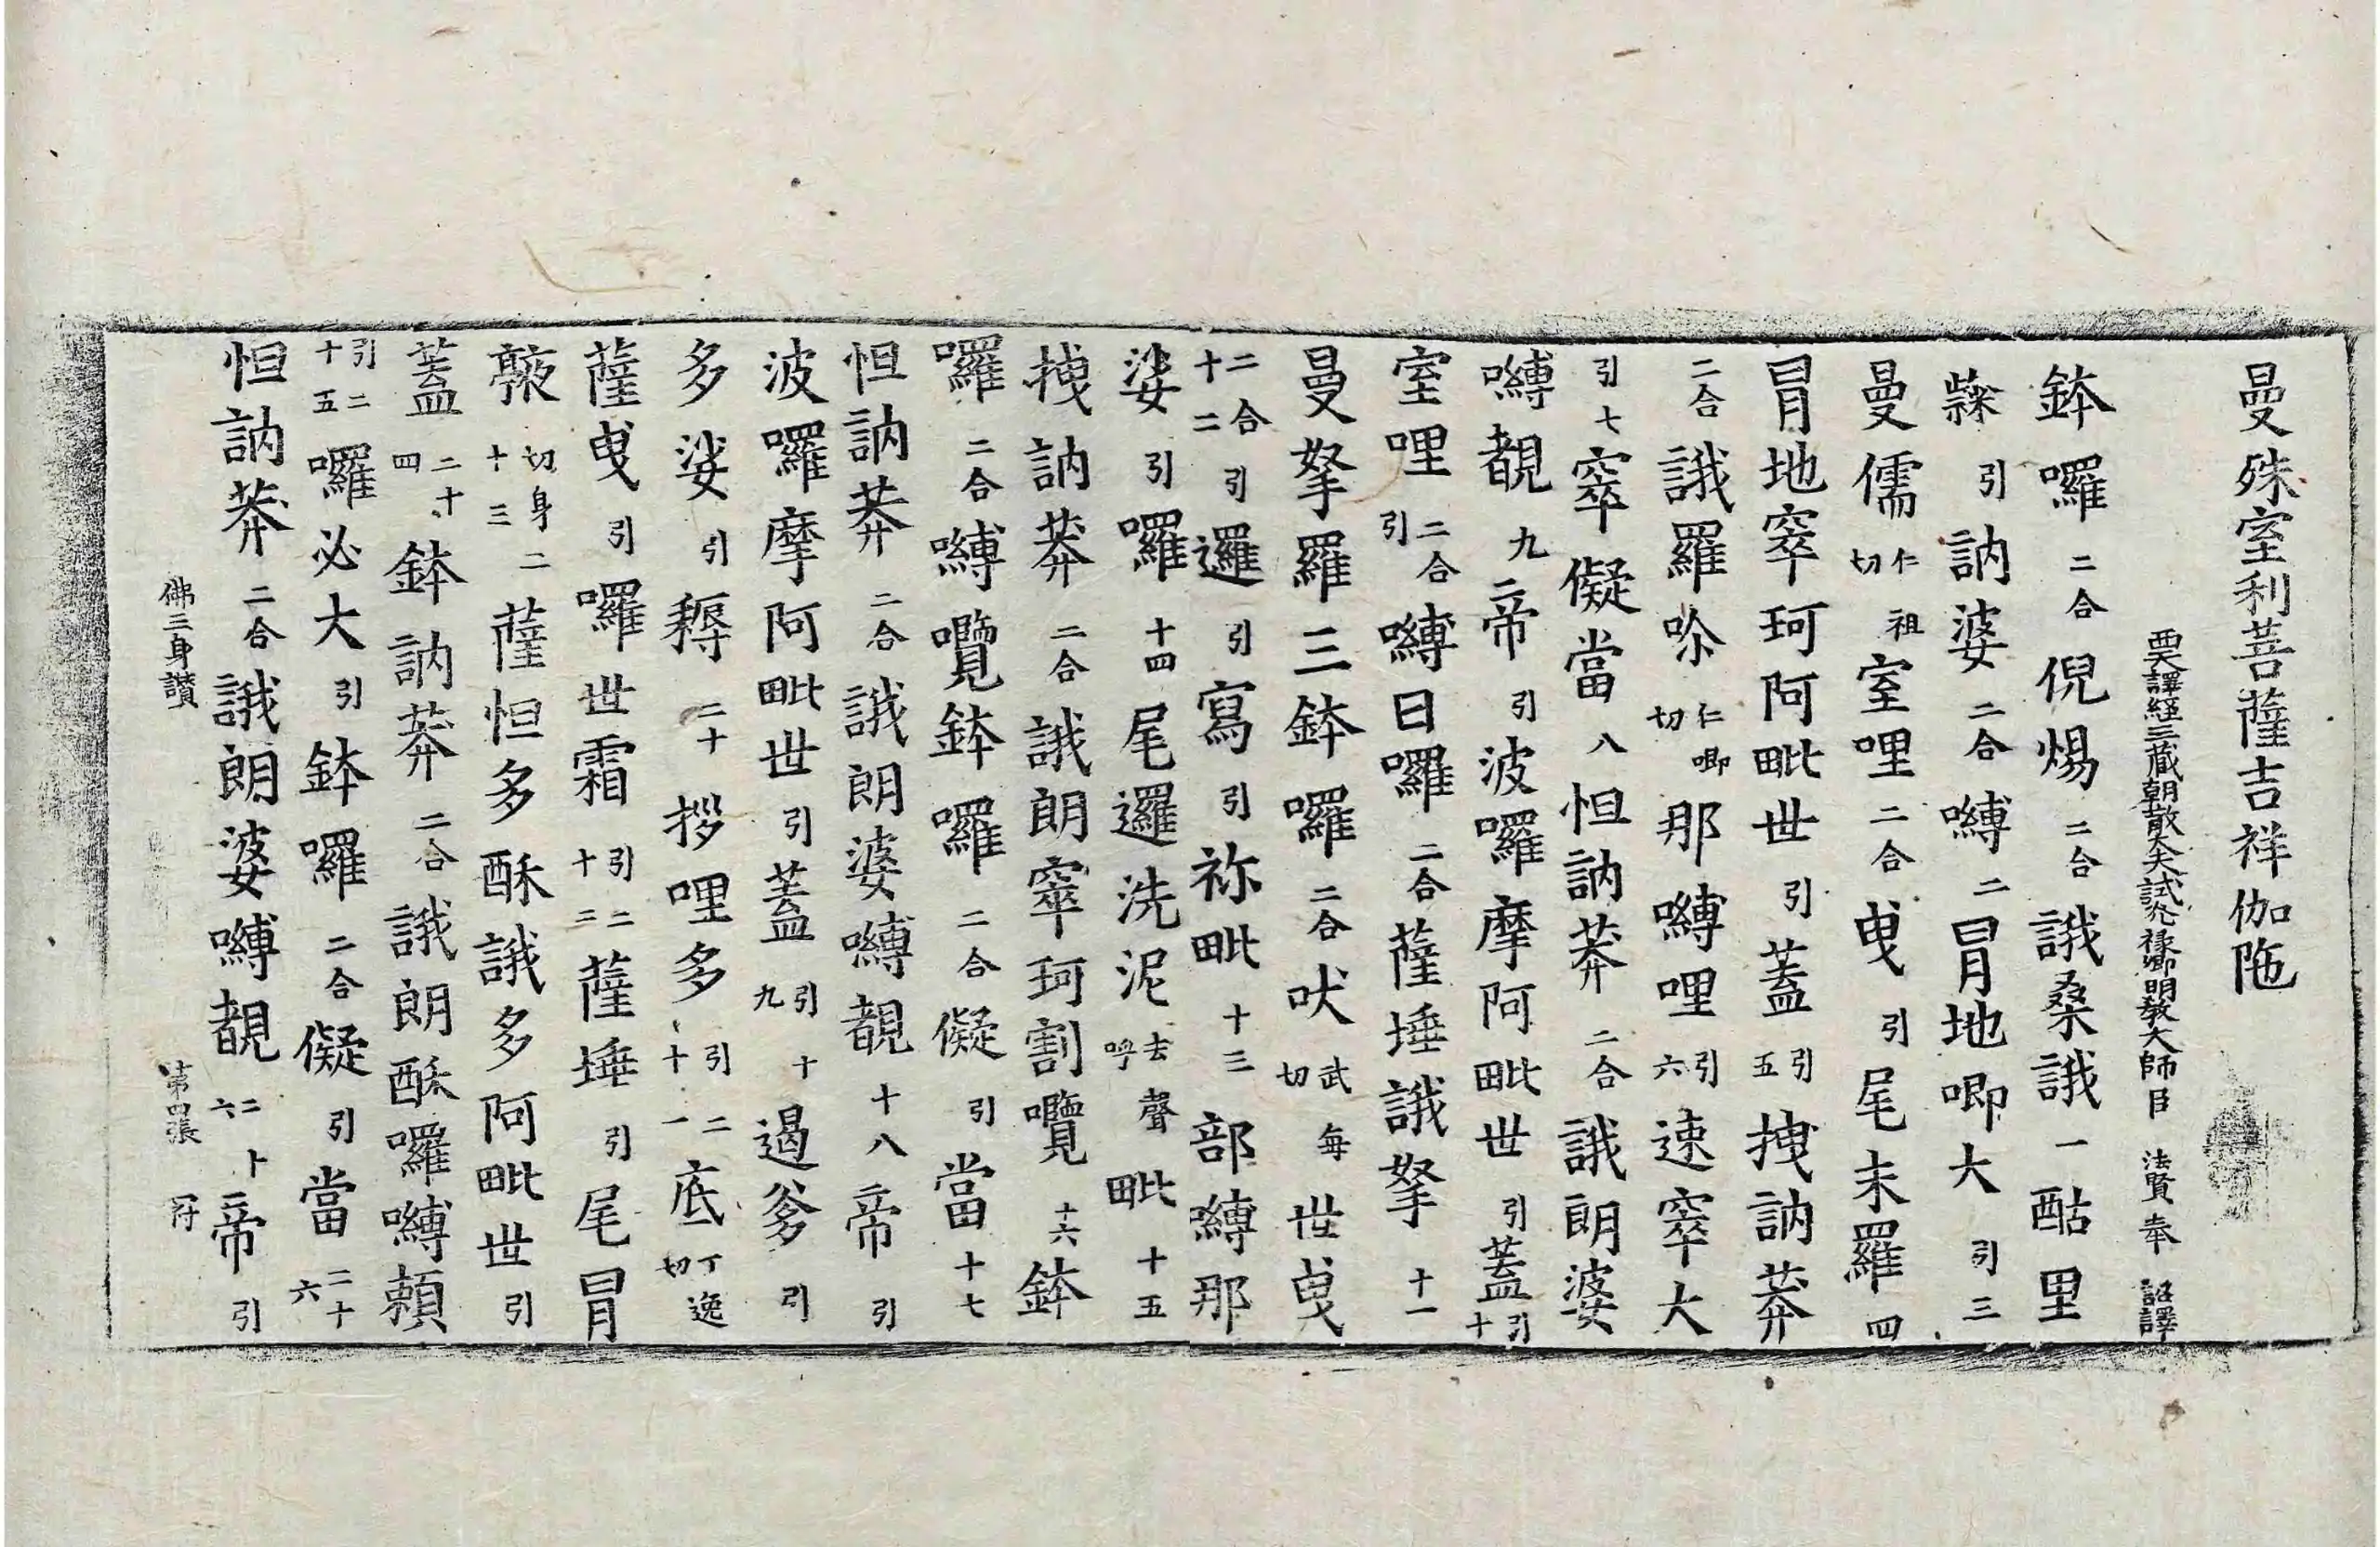 曼殊室利菩薩吉祥伽陁
西天譯經三藏朝散大夫試光祿卿明教大師臣法賢奉詔譯
鉢囉二合倪惕二合誐桑誐一酤里
引訥婆二合嚩二冐地唧大引三
曼儒仁祖切室哩二合曳引尾末羅四
冐地窣珂阿毗世引蓋引五拽訥莽
二合誐羅㖿仁唧切那嚩哩引六速窣大
引七窣儗當八怛訥莽二合誐朗婆
嚩覩九帝引波囉摩阿毗世引蓋引十
室哩二合引嚩日囉二合薩埵誐拏十一
曼拏羅三鉢囉二合吠武每切世曳
二合引十二邏引寫引祢毗十三部嚩那
娑引囉十四尾邏洗泥去聲呼毗十五
拽訥莽二合誐朗窣珂割囕十六鉢
囉二合嚩囕鉢囉二合儗引當十七
怛訥莽二合誐朗婆嚩覩十八帝引
波囉摩阿毗世引蓋引十九遏爹引
多娑引耨二十拶哩多引二十一底丁逸切
薩曳引囉世霜引二十二薩埵引尾冐
切身二十三薩怛多酥誐多阿毗世引
蓋二十四鉢訥莽二合誐朗酥囉嚩頼
引二十五囉必大引鉢囉二合儗引當二十六
怛訥莽二合誐朗婆嚩覩帝引
佛三身讃 第四張